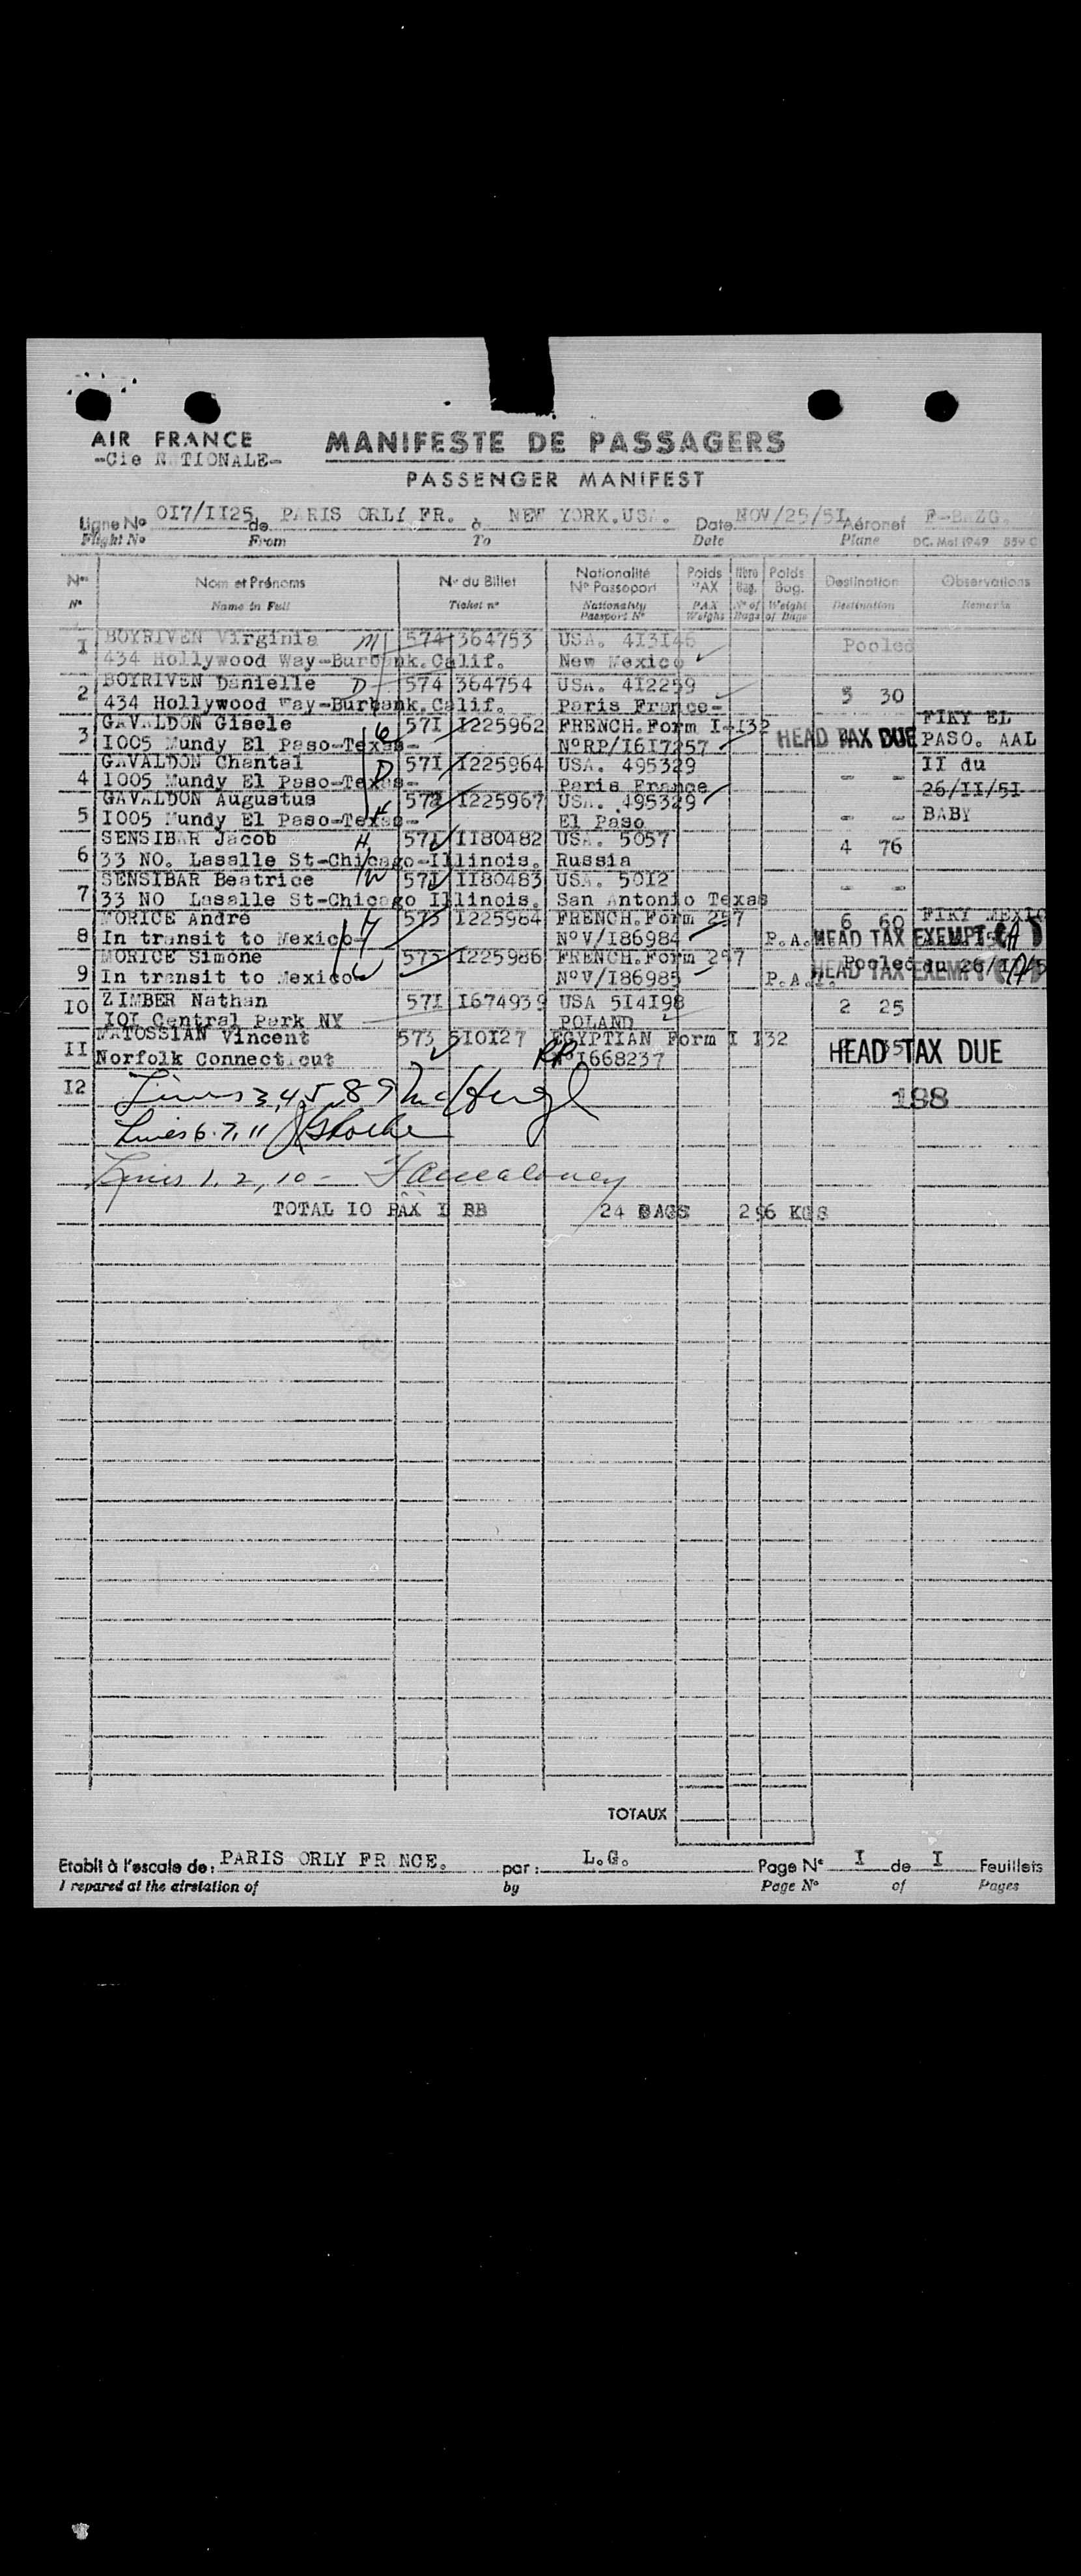 AIR FRANCE
-Cie N TIONALE-
MANIFESTE DE PASSAGERS
PASSENGER MANIFEST
Ligne No 0I7/II25 de PARIS ORLY FR. à NEW YORK.USA. Date NOV/25/5I Aéronef F-BAZG.
Flight No From To Date Plane DC. Mol 1949
Nos Nom et Prénoms No du Billet Nationalité No Passeport Poids PAX Nbre Bag. Poids Bag. Destination Observations
No Name in Full Ticket no Nationality Passport No PAX Weighs No of Bags Weight of Bags Destination Remarks
I BOYRIVEN Virginia M 574 364753 USA. 413146 Pooled
434 Hollywood Way-Burbank.Calif. New Mexico
2 BOYRIVEN Danielle D 574 364754 USA. 412259 3 30
434 Hollywood Way-Burbank.Calif. Paris France-
3 GAVALDON Gisele 57I I225962 FRENCH.Form I-I32 FIKY EL
I005 Mundy El Paso-Texas- NoRP/I6I7257 HEAD TAX DUE PASO. AAL
4 GAVALDON Chantal D 57I I225964 USA. 495329 - - II du
I005 Mundy El Paso-Texas- Paris France 26/II/5I
5 GAVALDON Augustus 572 I225967 USA. 495329 - - BABY
I005 Mundy El Paso-Texas- El Paso
6 SENSIBAR Jacob H 57I II80482 USA. 5057 4 76
33 NO. Lasalle St-Chicago-Illinois. Russia
7 SENSIBAR Beatrice W 57I II80483 USA. 50I2 - -
33 NO Lasalle St-Chicago Illinois. San Antonio Texas
8 MORICE André H 573 I225984 FRENCH.Form 257 6 60 FIKY MEXIC
In transit to Mexico- NoV/I86984 P.A. HEAD TAX EXEMPT
9 MORICE Simone W 573 I225986 FRENCH.Form 247 Pooled du 26/II/5
In transit to Mexico NoV/I86985 P.A. HEAD TAX EXEMPT
I0 ZIMBER Nathan 57I I674939 USA 5I4I98 2 25
I0I Central Park NY POLAND
II MATOSSIAN Vincent 573 5I0I27 EGYPTIAN Form I I32
Norfolk Connecticut RP I668237 HEAD TAX DUE
I2 Lines 3,4,5,8,9 188
Lines 6.7.11
Lines 1, 2, 10 -
TOTAL I0 PAX I BB 24 BAGS 296 KGS
TOTAUX
Etabli à l'escale de: PARIS ORLY FR NCE. par: L.G. Page No I de I Feuillets
Prepared at the airstation of by Page No of Pages